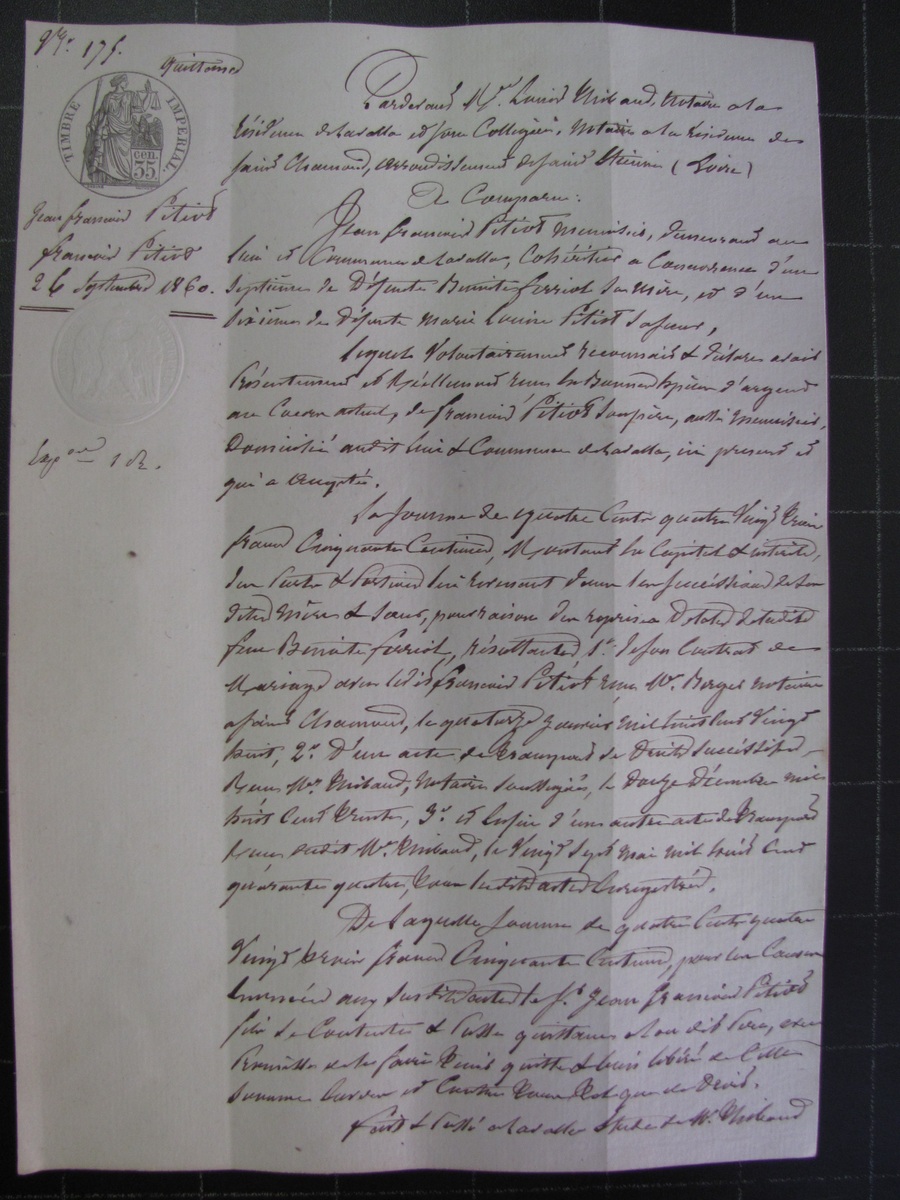 175.
Quittance
TIMBRE IMPERIAL.
cen.
35
Jean François Pitiot
François Pitiot
26 Septembre 1860.
Exp on 1 R.
Pardevant Me Louis notaire à la
Résidence de Lavalla et son Collègue, notaire à la résidence de
Saint Chamond, arrondissement de Saint Etienne (Loire)
A Comparu:
Jean François Pitiot menuisier, demeurant au
lieu et Commune de Lavalla, Cohéritier à Concurrence d'un
Septième de Défunte Benoite Ferriol Sa mère, et d'un
Sixième de défunte Marie Louise Pitiot Sa sœur,
Lequel Volontairement reconnait & déclare avoir
Présentement et Réellement reçu en Bonnes Espèces d'argent
au Cours actuel, de François Pitiot Son père, aussi menuisier,
Domicilié audit lieu & Commune de Lavalla, ici présent et
qui a accepté.
La Somme de quatre Cents quatre Vingt trois
francs Cinquante Centimes, Montant en Capital & intérêts,
des Parts & Portions lui revenant dans les Successions de Ses
dites mère & Sœur, pour raison des reprises Dotales de ladite
feue Benoite Ferriol, résultantes 1° de son Contrat de
Mariage avec ledit François Pitiot reçu Me Berger notaire
à Saint Chamond, le quatorze Janvier mil huit cent Vingt
huit, 2° D'un acte de transport de Droits Successifs
Reçu Me notaire Soussigné, le Douze Décembre mil
huit Cent trente, 3° et Enfin d'un autre acte de transport
reçu sudit Me le Vingt Sept mai mil huit Cent
quarante quatre, tous lesdits actes Enregistrés.
De laquelle Somme de quatre Cents quatre
Vingt trois francs Cinquante Centimes, pour les Causes
Enoncées aux Susdits actes le Sr Jean François Pitiot
Se Contente & Passe quittance à son dit Père, avec
Promesse de le faire tenir quitte & bien libéré de Cette
Somme Envers et Contre tous tel que de Droit.
Fait & Passé à Lavalla Etude de Me